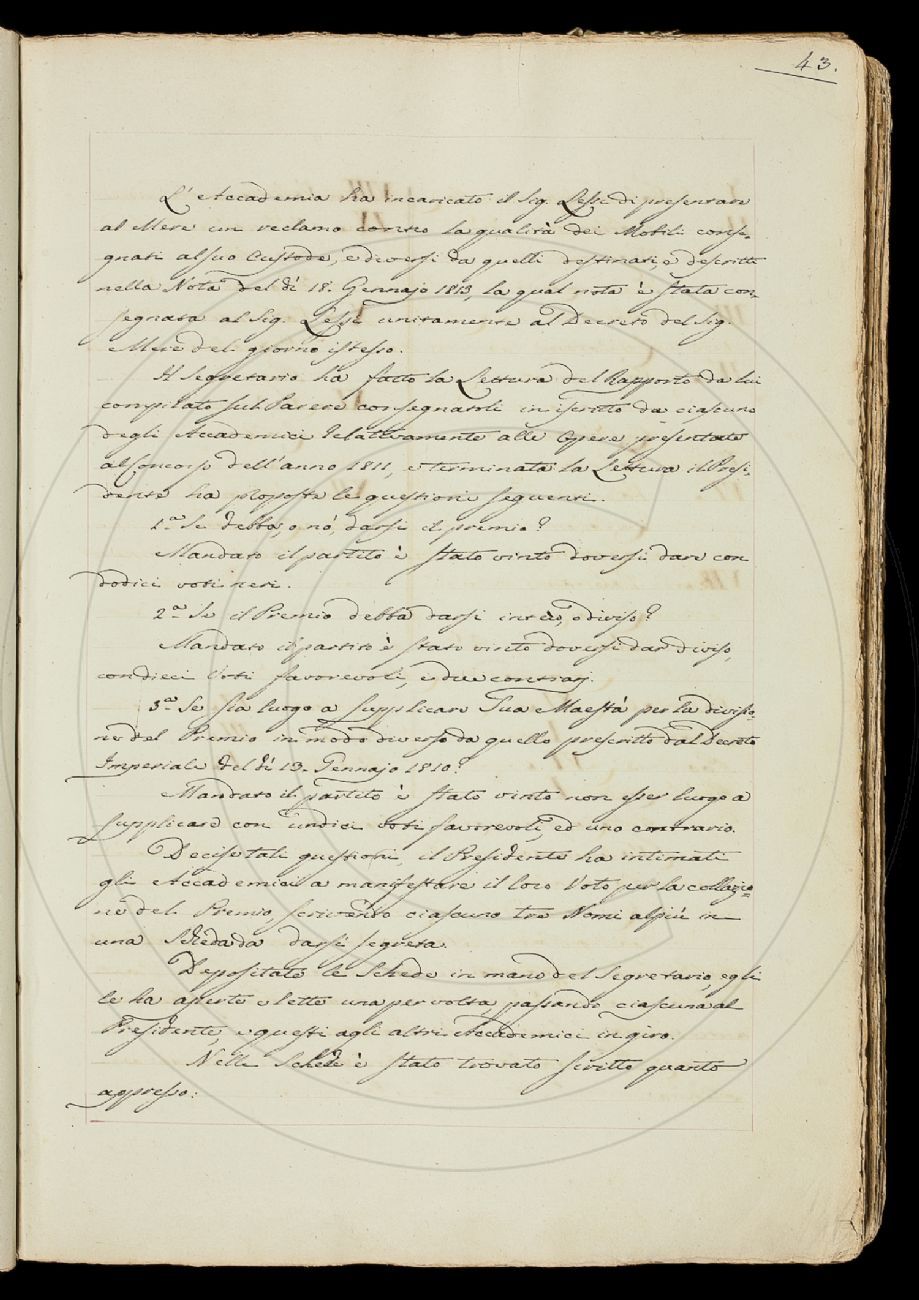 43.
L'Accademia ha incaricato il Sig. Lessi di presentare
al Mere un reclamo contro la qualità dei Mobili conse-
gnati al suo Custode, e diversi da quelli destinati, e descritti
nella Nota del dì 18. Gennajo 1813, la qual nota è stata con-
segnata al Sig. Lessi unitamente al Decreto del Sig.
Mere del giorno istesso.
Il Segretario ha fatto la Lettura del Rapporto da lui
compilato sul Parere consegnatoli in iscritto da ciascuno
degli Accademici relativamente alle Opere presentate
al Concorso dell'anno 1811, e terminata la Lettura il Presi-
dente ha proposte le questioni seguenti.
1.a Se debba, o nò, darsi il premio?
Mandato il partito è stato vinto doversi dare con
dodici voti neri.
2.a Se il Premio debba darsi intero, o diviso?
Mandato il partito è stato vinto doversi dar diviso,
con dieci voti favorevoli, e due contrarj.
3.a Se sia luogo a supplicare Sua Maestà per la divisio-
ne del Premio in modo diverso da quello prescritto dal Decreto
Imperiale del dì 13. Gennajo 1810?
Mandato il partito è stato vinto non esser luogo a
supplicare con undici voti favorevoli, ed uno contrario.
Decise tali questioni, il Presidente ha intimati
gli Accademici a manifestare il loro Voto per la collazio-
ne del Premio, scrivendo ciascuno tre Nomi al più in
una Scheda da darsi segreta.
Depositate le Schede in mano del Segretario, egli
le ha aperte e lette una per volta, passando ciascuna al
Presidente, e questi agli altri Accademici in giro.
Nelle Schede è stato trovato scritto quanto
appresso: